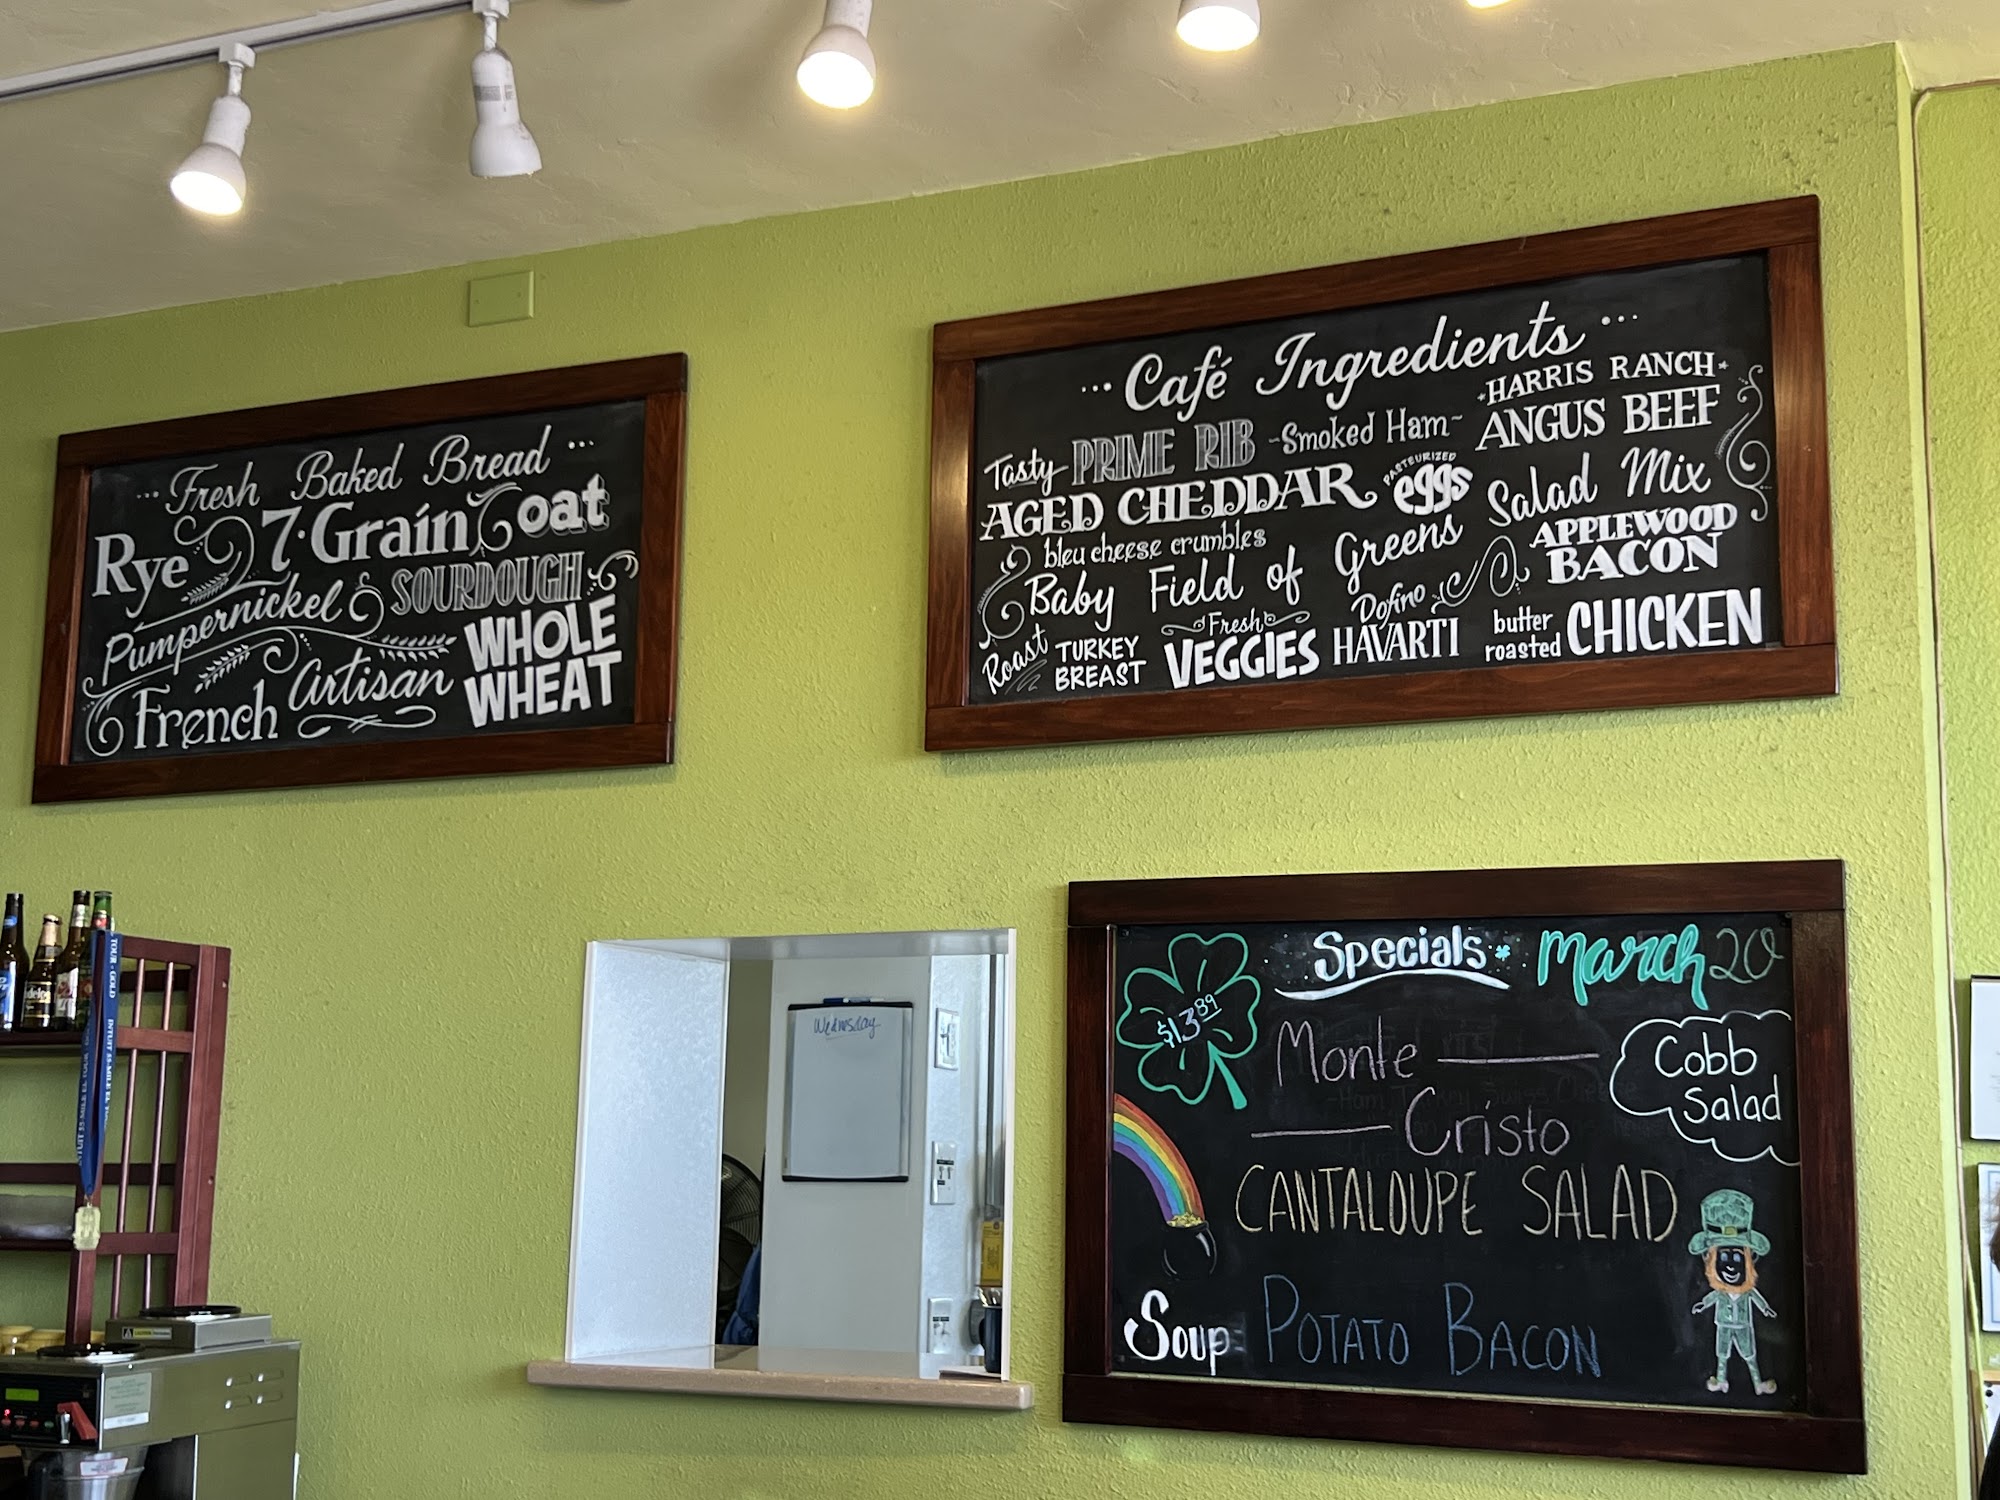 ... Fresh Baked Bread ...
Rye 7·Grain oat
Pumpernickel & SOURDOUGH
French Artisan WHOLE
WHEAT
... Café Ingredients ...
Tasty PRIME RIB ~Smoked Ham~ HARRIS RANCH
ANGUS BEEF
AGED CHEDDAR PASTEURIZED eggs Salad Mix
bleu cheese crumbles
Baby Field of Greens APPLEWOOD
BACON
Roast TURKEY
BREAST
Fresh
VEGGIES
Dofino
HAVARTI
butter
roasted CHICKEN
Specials March 20
$13.89
Monte
Cristo
Cobb
Salad
CANTALOUPE SALAD
Soup POTATO BACON
Wednesday
TOUR - GOLD